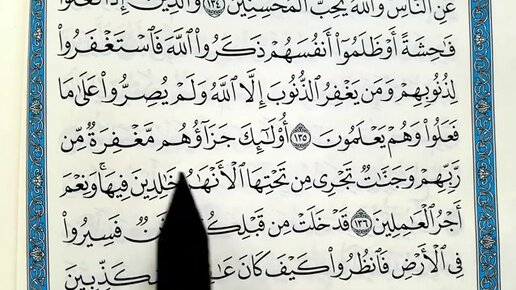 عَنِ ٱلنَّاسِ وَٱللَّهُ يُحِبُّ ٱلْمُحْسِنِينَ ١٣٤ وَٱلَّذِينَ إِذَا فَعَلُوا۟
فَـٰحِشَةً أَوْ ظَلَمُوٓا۟ أَنفُسَهُمْ ذَكَرُوا۟ ٱللَّهَ فَٱسْتَغْفَرُوا۟
لِذُنُوبِهِمْ وَمَن يَغْفِرُ ٱلذُّنُوبَ إِلَّا ٱللَّهُ وَلَمْ يُصِرُّوا۟ عَلَىٰ مَا
فَعَلُوا۟ وَهُمْ يَعْلَمُونَ ١٣٥ أُو۟لَـٰٓئِكَ جَزَآؤُهُم مَّغْفِرَةٌ مِّن
رَّبِّهِمْ وَجَنَّـٰتٌ تَجْرِى مِن تَحْتِهَا ٱلْأَنْهَـٰرُ خَـٰلِدِينَ فِيهَا ۚ وَنِعْمَ
أَجْرُ ٱلْعَـٰمِلِينَ ١٣٦ قَدْ خَلَتْ مِن فَسِيرُوا۟
فِى ٱلْأَرْضِ فَٱنظُرُوا۟ كَيْفَ كَانَ